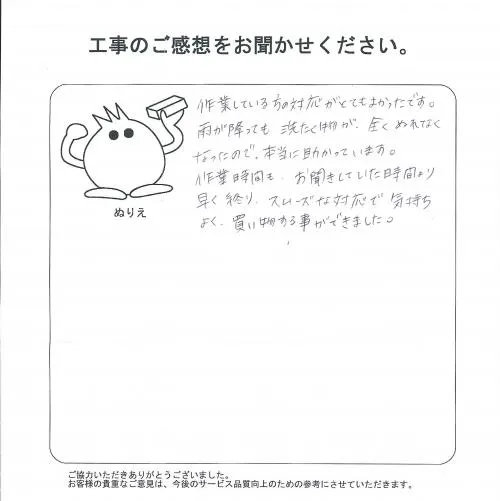 工事のご感想をお聞かせください。
作業している方の対応がとてもよかったです。
雨が降っても 洗たく物が、全くぬれてなく
なったので、本当に助かっています。
作業時間も、お聞きしていた時間より
早く終り、スムーズな対応で気持ち
よく、買い物する事ができました。
ぬりえ
ご協力いただきありがとうございました。
お客様の貴重なご意見は、今後のサービス品質向上のための参考にさせていただきます。